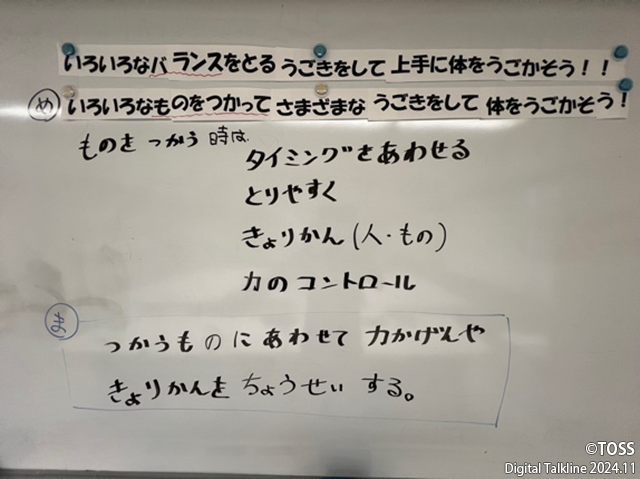 いろいろなバランスをとるうごきをして上手に体をうごかそう！！
め いろいろなものをつかって さまざまな うごきをして 体をうごかそう！
ものを つかう 時は、
タイミングをあわせる
とりやすく
きょりかん（人・もの）
力のコントロール
ま
つかうものにあわせて 力かげんや
きょりかんを ちょうせい する。
©TOSS
Digital Talkline 2024.11